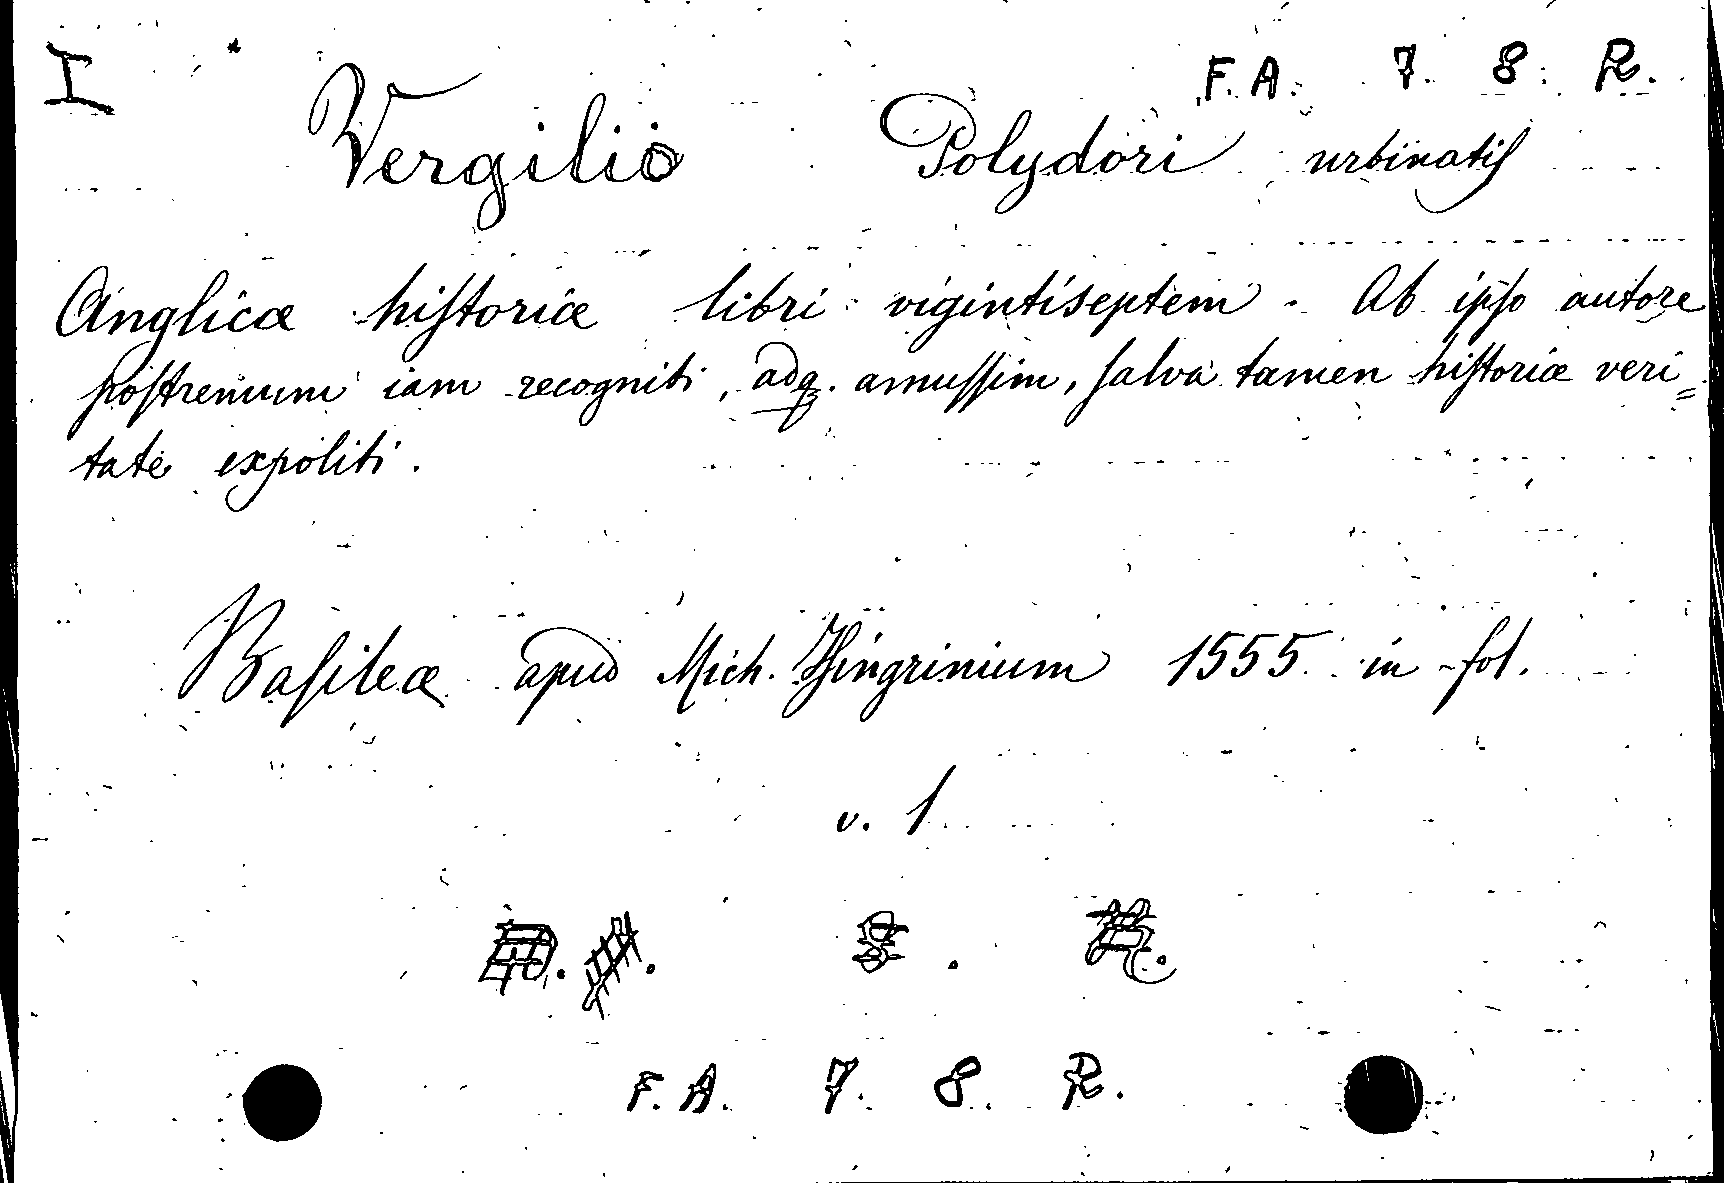 I F. A. 7. 8. R.
Vergilio Polydori urbinatis
Anglicæ historiæ libri vigintiseptem. Ab ipso autore
postremum iam recogniti, adq. amussim, salva tamen historiæ veri=
tate expoliti.
Basileæ apud Mich. Isingrinium 1555 in fol.
v. 1
F. A. 7. 8. R.